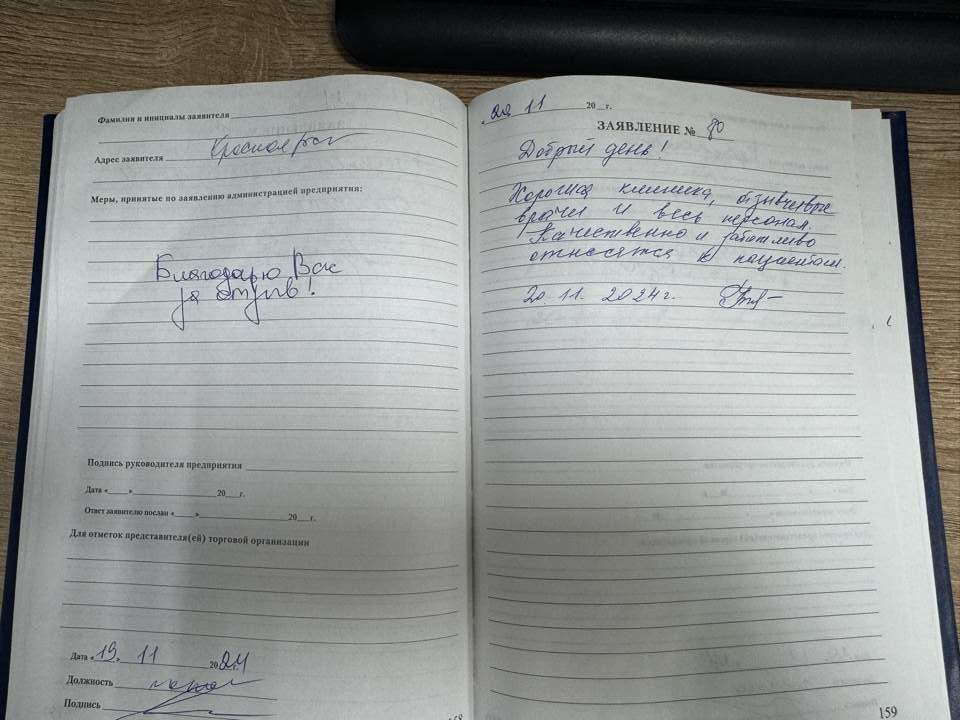 Фамилия и инициалы заявителя
Адрес заявителя Красноярск
Меры, принятые по заявлению администрацией предприятия:
Благодарю Вас
за отзыв!
Подпись руководителя предприятия
Дата «___» 20__г.
Ответ заявителю послан «___» 20__г.
Для отметок представителя(ей) торговой организации
Дата «19» 11 2024
Должность
Подпись
11 20__г.
ЗАЯВЛЕНИЕ № 80
Добрый день!
Хорошая клиника, отзывчивые
врачи и весь персонал.
Качественно и заботливо
относятся к пациентам.
20.11.2024г.
159